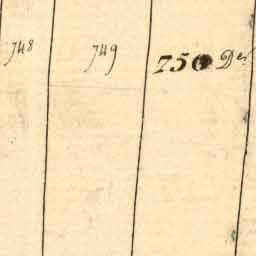 748 749 750 Des